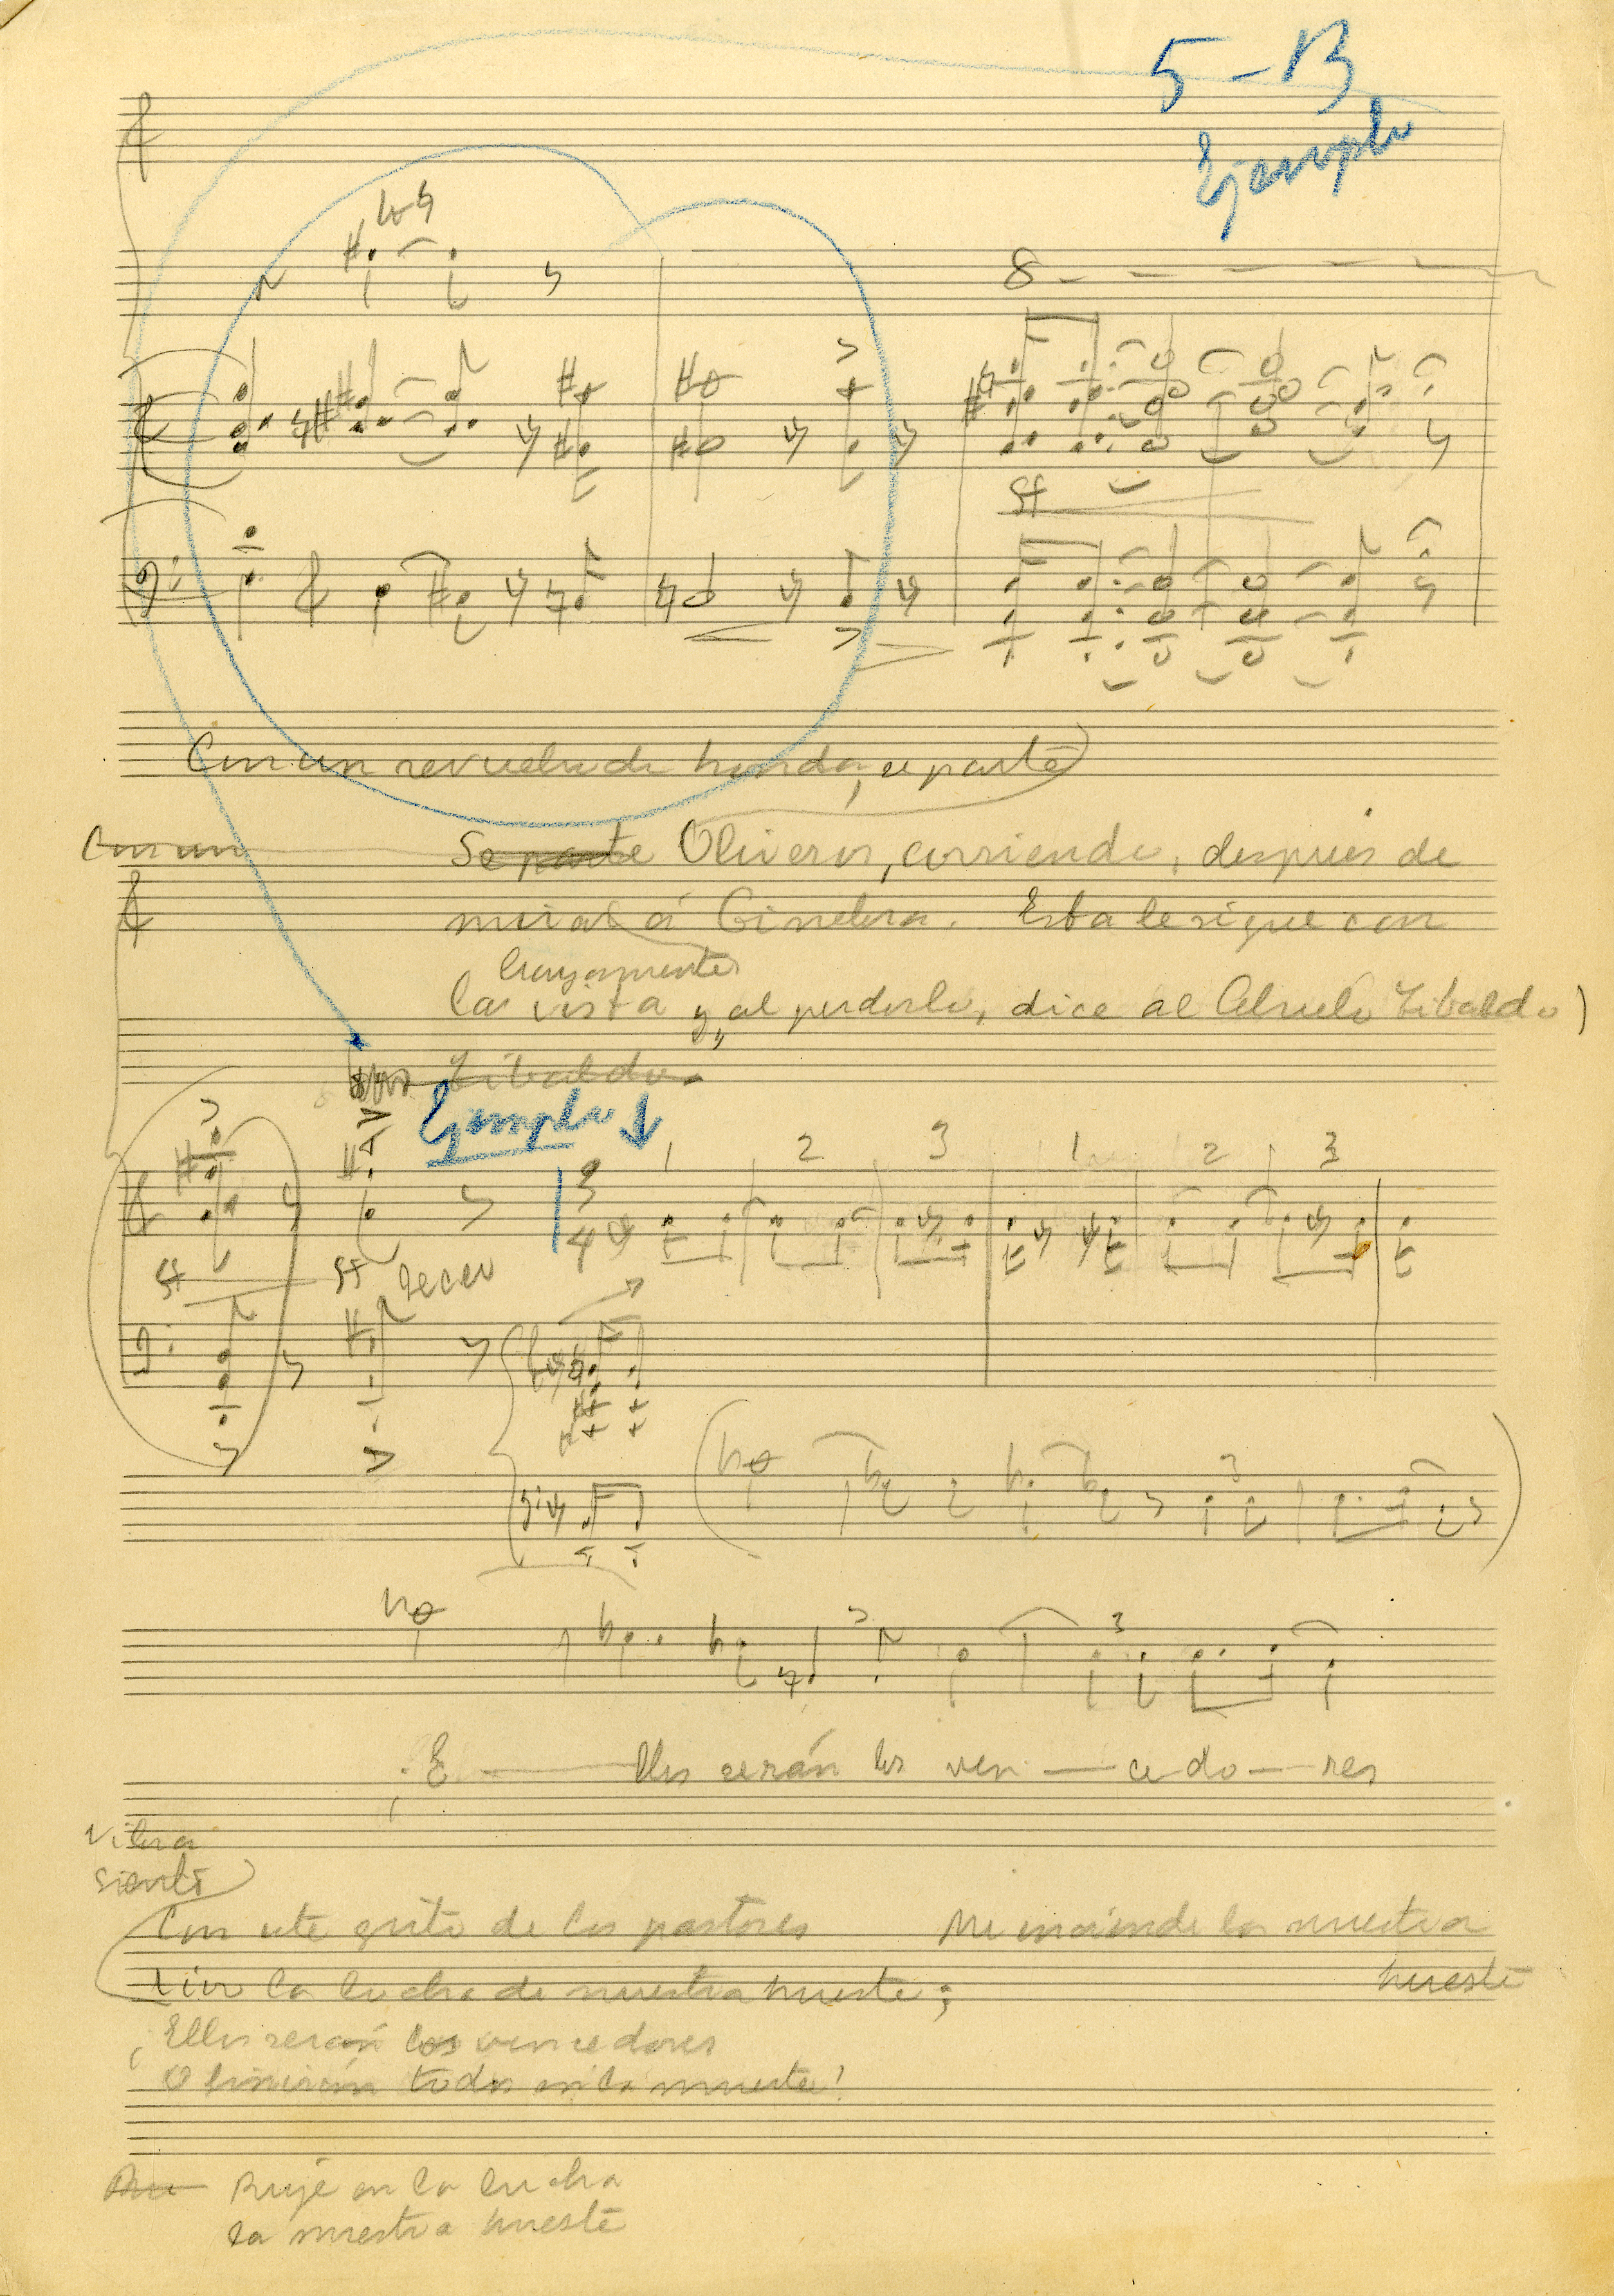 5 - B
Ejemplo
8
ff
Con un revuelo de honda, se parte)
Con un Se parte Oliveros, corriendo, después de
mirar á Ginebra. Esta le sigue con
largamente
la vista y, al perderlo, dice al Abuelo Tibaldo)
Tibaldo.
Ejemplo
1 2 3 1 2 3
3
4
ff ff seco
3
3
¡E llos serán los ven ce do res
Vibra
siento
Con este grito de los pastores Me enciende la nuestra
hueste
la lucha de nuestra hueste;
¡Ellos serán los vencedores
O finirán todos en la muerte!
Ru Ruje en la lucha
la nuestra hueste